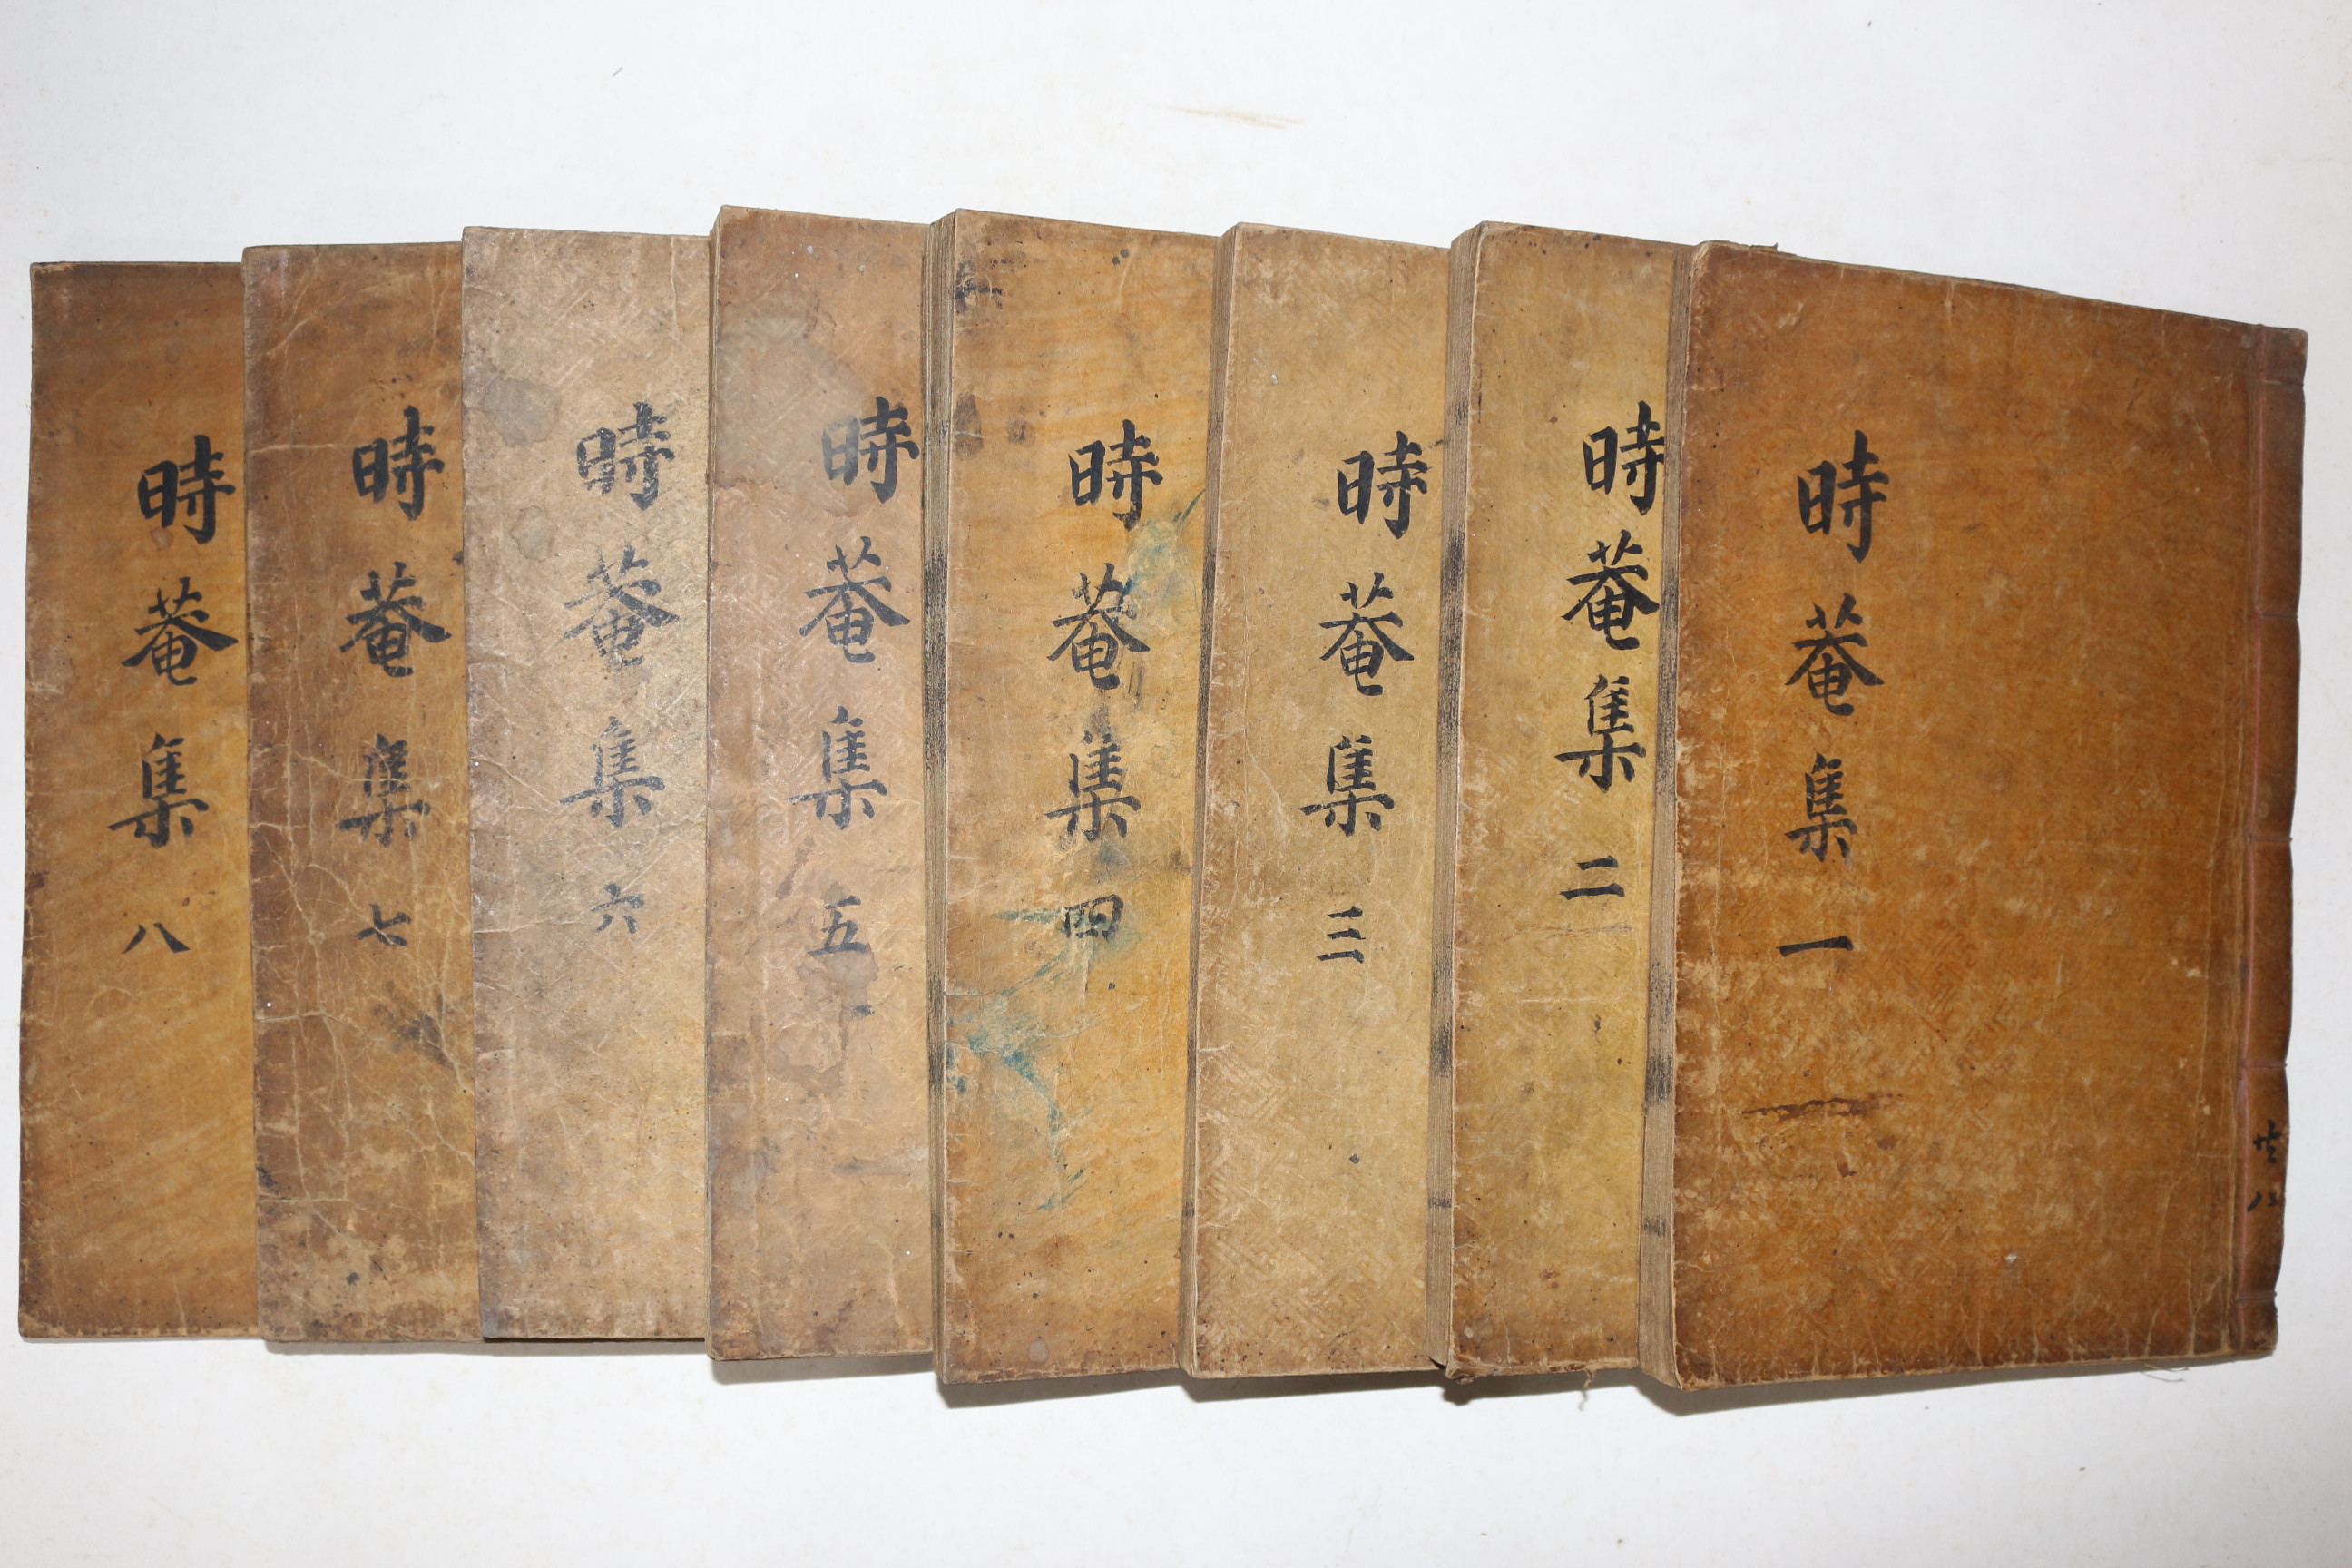 時菴集 一
時菴集 二
時菴集 三
時菴集 四
時菴集 五
時菴集 六
時菴集 七
時菴集 八
共八